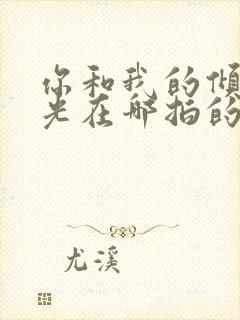 你和我的倾
光在哪拍的
尤溪